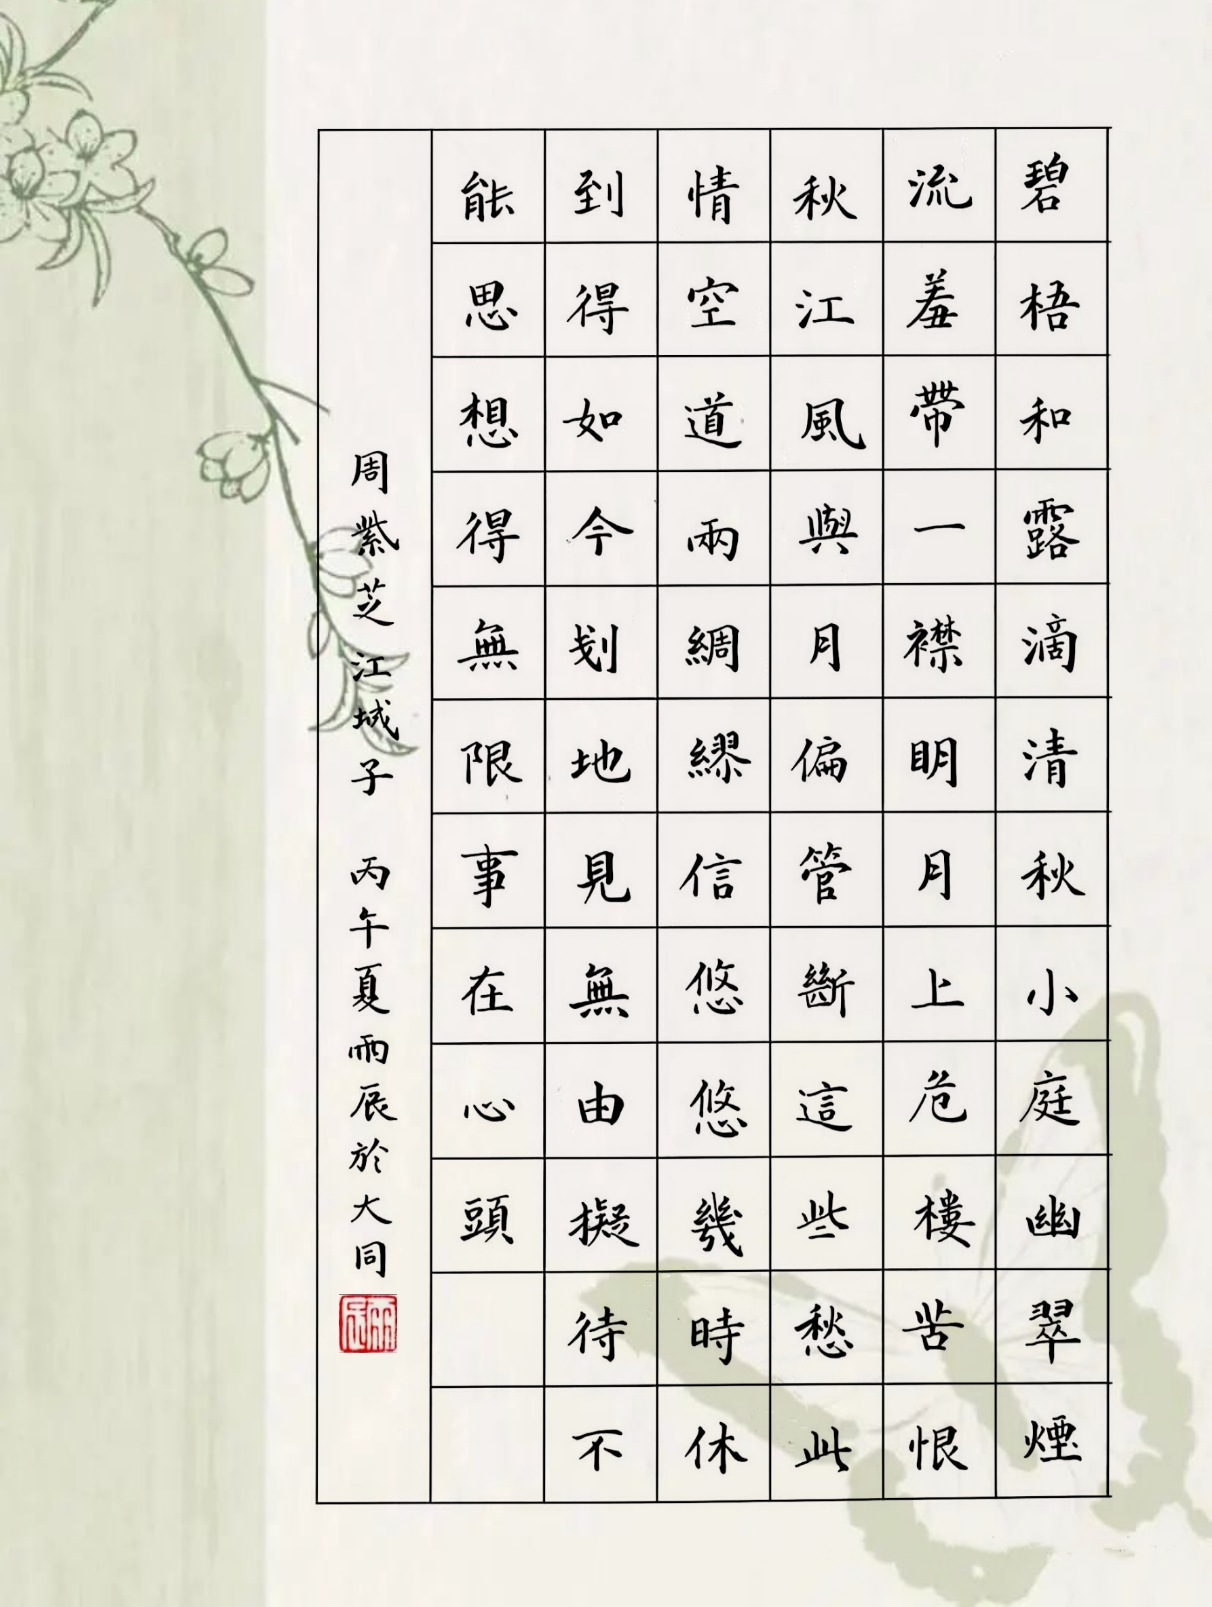 碧梧和露滴清秋小庭幽翠煙
流羞帶一襟明月上危樓苦恨
秋江風與月偏管斷這些愁此
情空道兩綢繆信悠悠幾時休
到得如今刬地見無由擬待不
能思想得無限事在心頭
周紫芝江城子 丙午夏雨辰於大同
雨辰